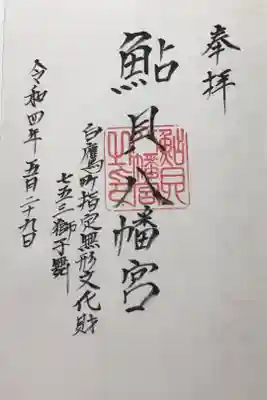 奉拝
鮎貝八幡宮
白鷹町指定無形文化財
七五三獅子舞
令和四年五月二十九日